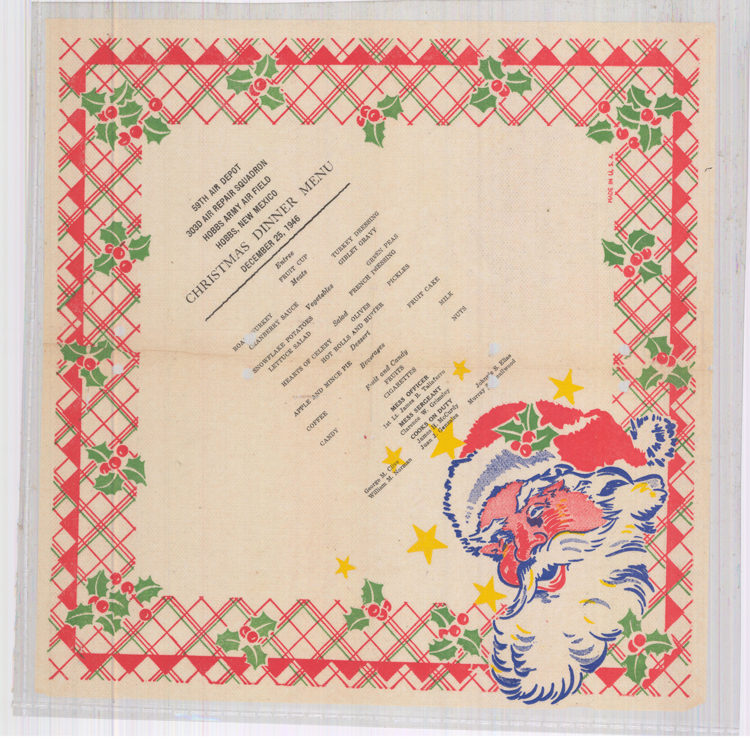 59TH AIR DEPOT
303D AIR REPAIR SQUADRON
HOBBS ARMY AIR FIELD
HOBBS, NEW MEXICO
CHRISTMAS DINNER MENU
DECEMBER 25, 1946
Entree
FRUIT CUP
Meats
TURKEY TURKEY DRESSING
CRANBERRY SAUCE GIBLET GRAVY
Vegetables
SNOWFLAKE POTATOES GREEN PEAS
LETTUCE SALAD FRENCH DRESSING
Salad
HEARTS OF CELERY OLIVES PICKLES
HOT ROLLS AND BUTTER
Dessert
APPLE AND MINCE PIE FRUIT CAKE
Beverages
COFFEE MILK
Fruit and Candy
CANDY FRUITS NUTS
CIGARETTES
MESS OFFICER
1st Lt. James R. Taliaferro
MESS SERGEANT
Clarence W. Grimsley
COOKS ON DUTY
George M. James H. McCurdy John S. Elias
William M. Norman Juan J. Gonzales Murray
MADE IN U. S. A.